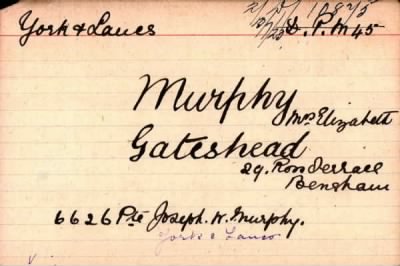 York & Lancs
D. P. M 45
Murphy
Mrs Elizabeth
Gateshead
29. Ross Terrace
Bensham
6626 Pte Joseph. W. Murphy.
York & Lancs